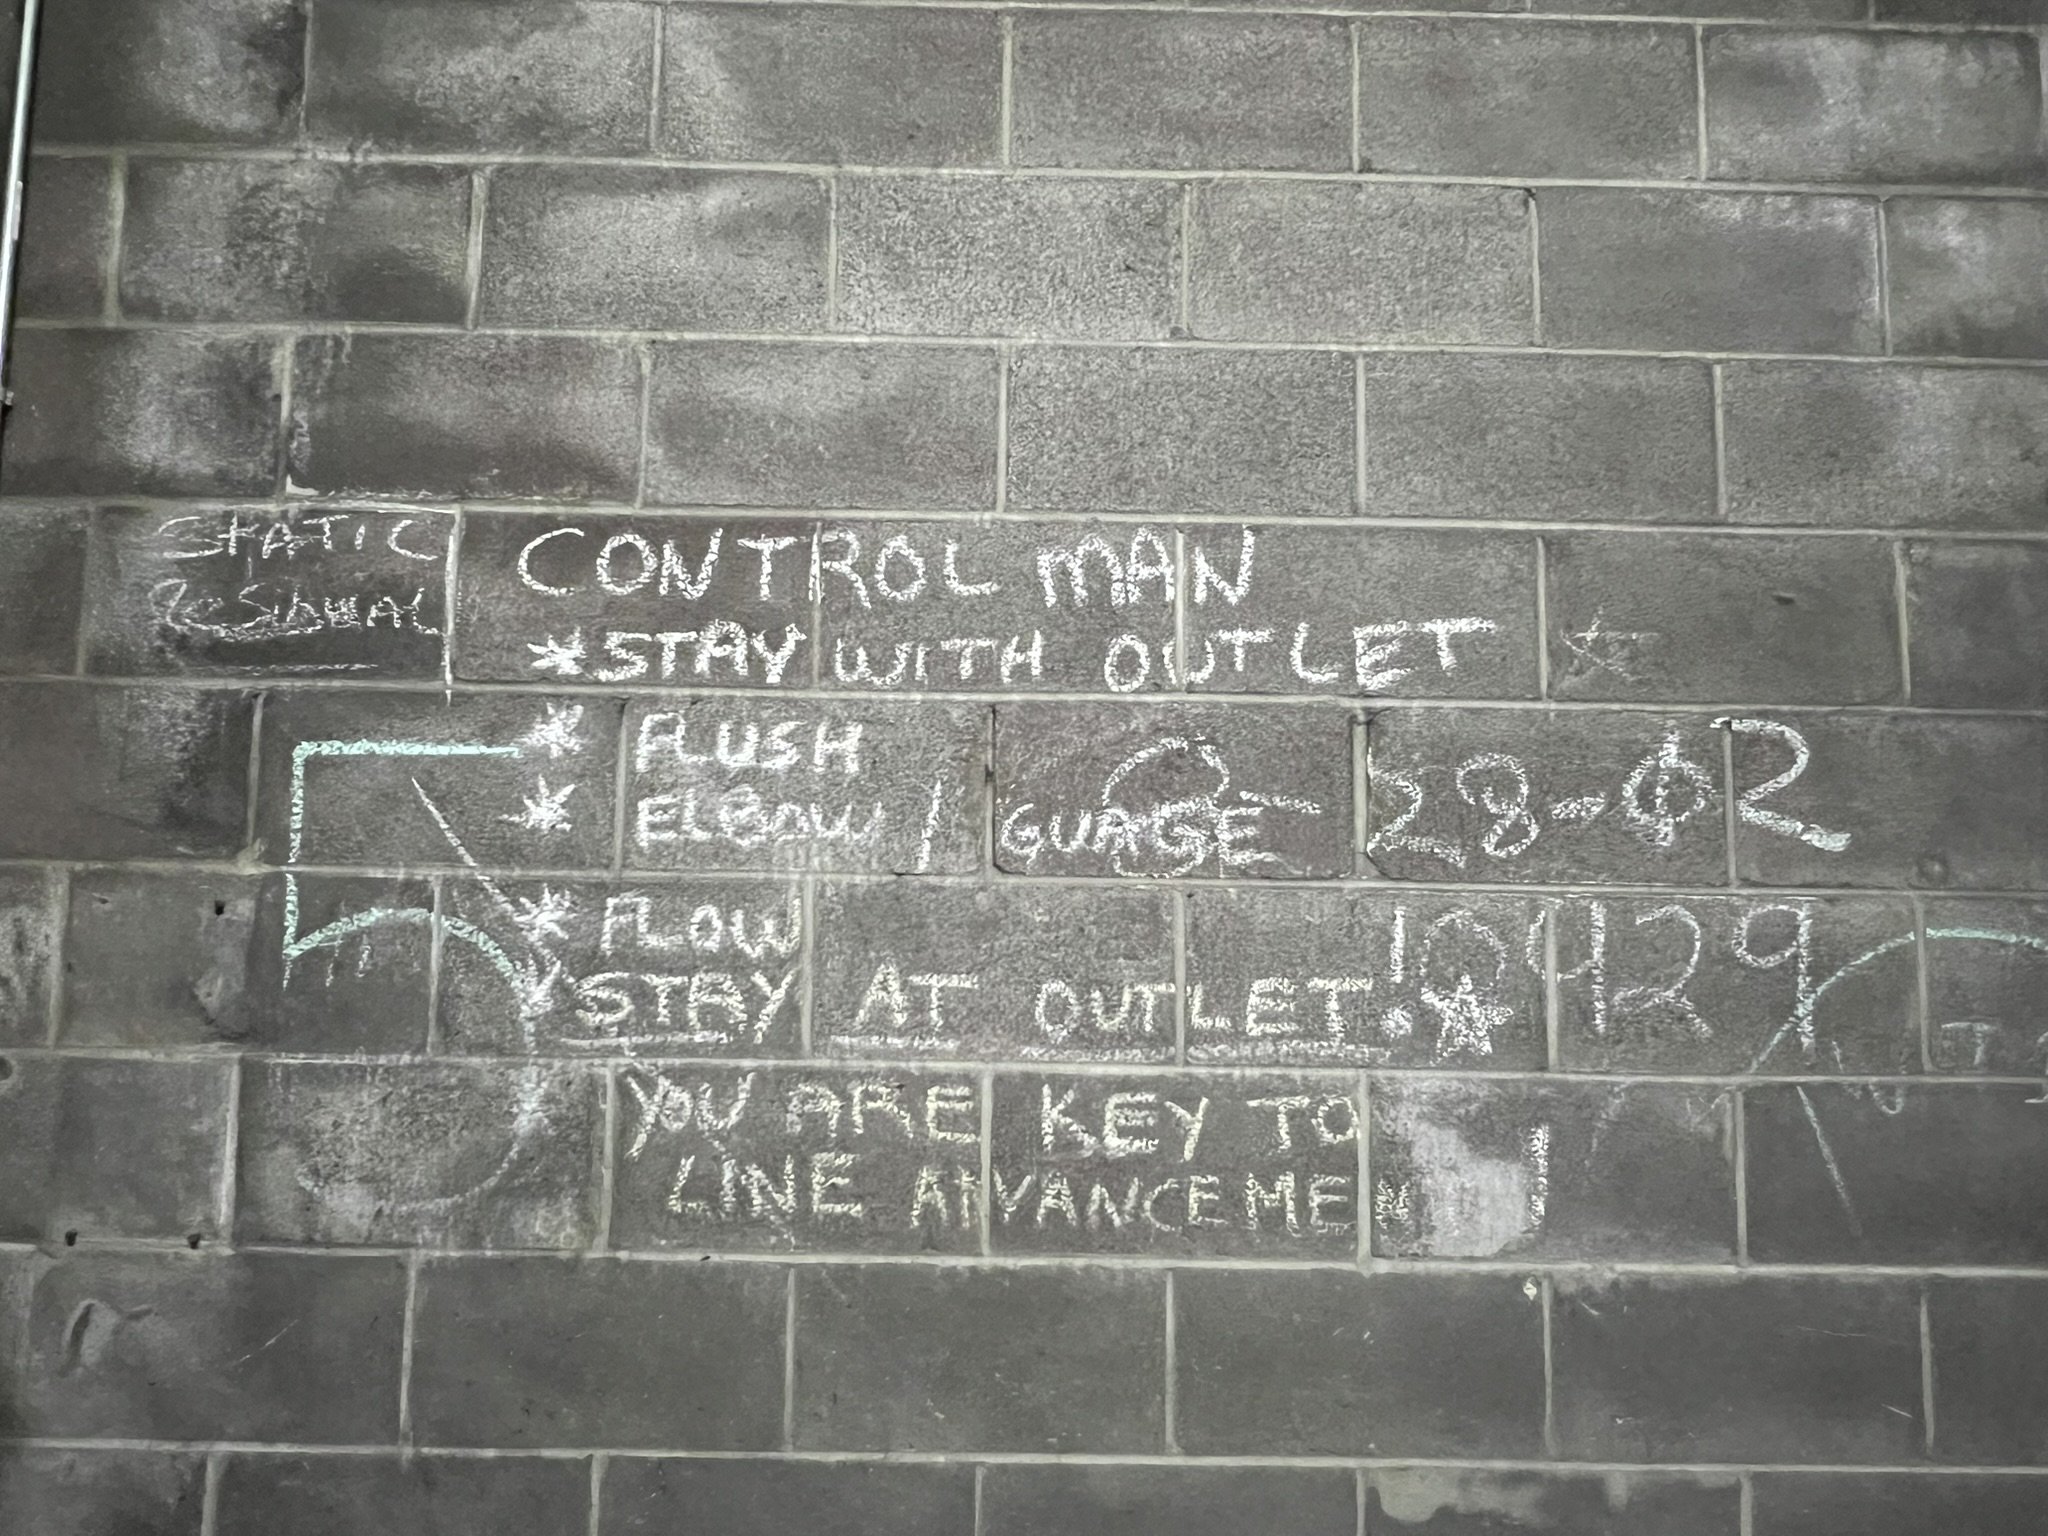 STATIC
RESIDUAL
CONTROL MAN
*STAY WITH OUTLET ←
* FLUSH
* ELBOW / GUAGE - 28-02
* FLOW
STAY AT OUTLET! * 10429
YOU ARE KEY TO
LINE ADVANCEME !